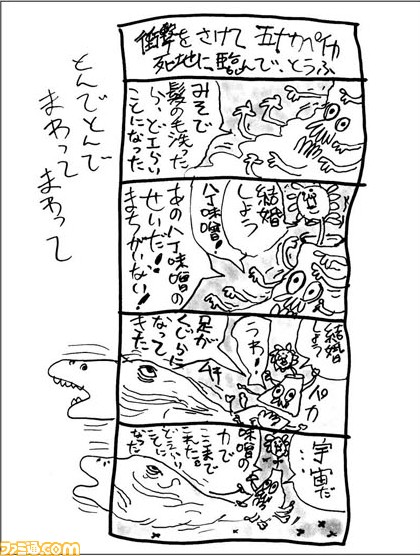 衝撃をさけて 五十カペイカ
死地に臨んで、とうふ
とんでとんで
まわって
まわって
みそで
髪の毛洗った
ら、どエらい
ことになった
結婚
しよう
八丁味噌!
あの八丁味噌の
せいだ!
まちがいない!
結婚
しよう
うわ!
パカ
足が
くじらに
なって
きた
ムキ
宇宙だ
味噌の
力で
ここまで
これた
ことに
なった
ファミ通.com